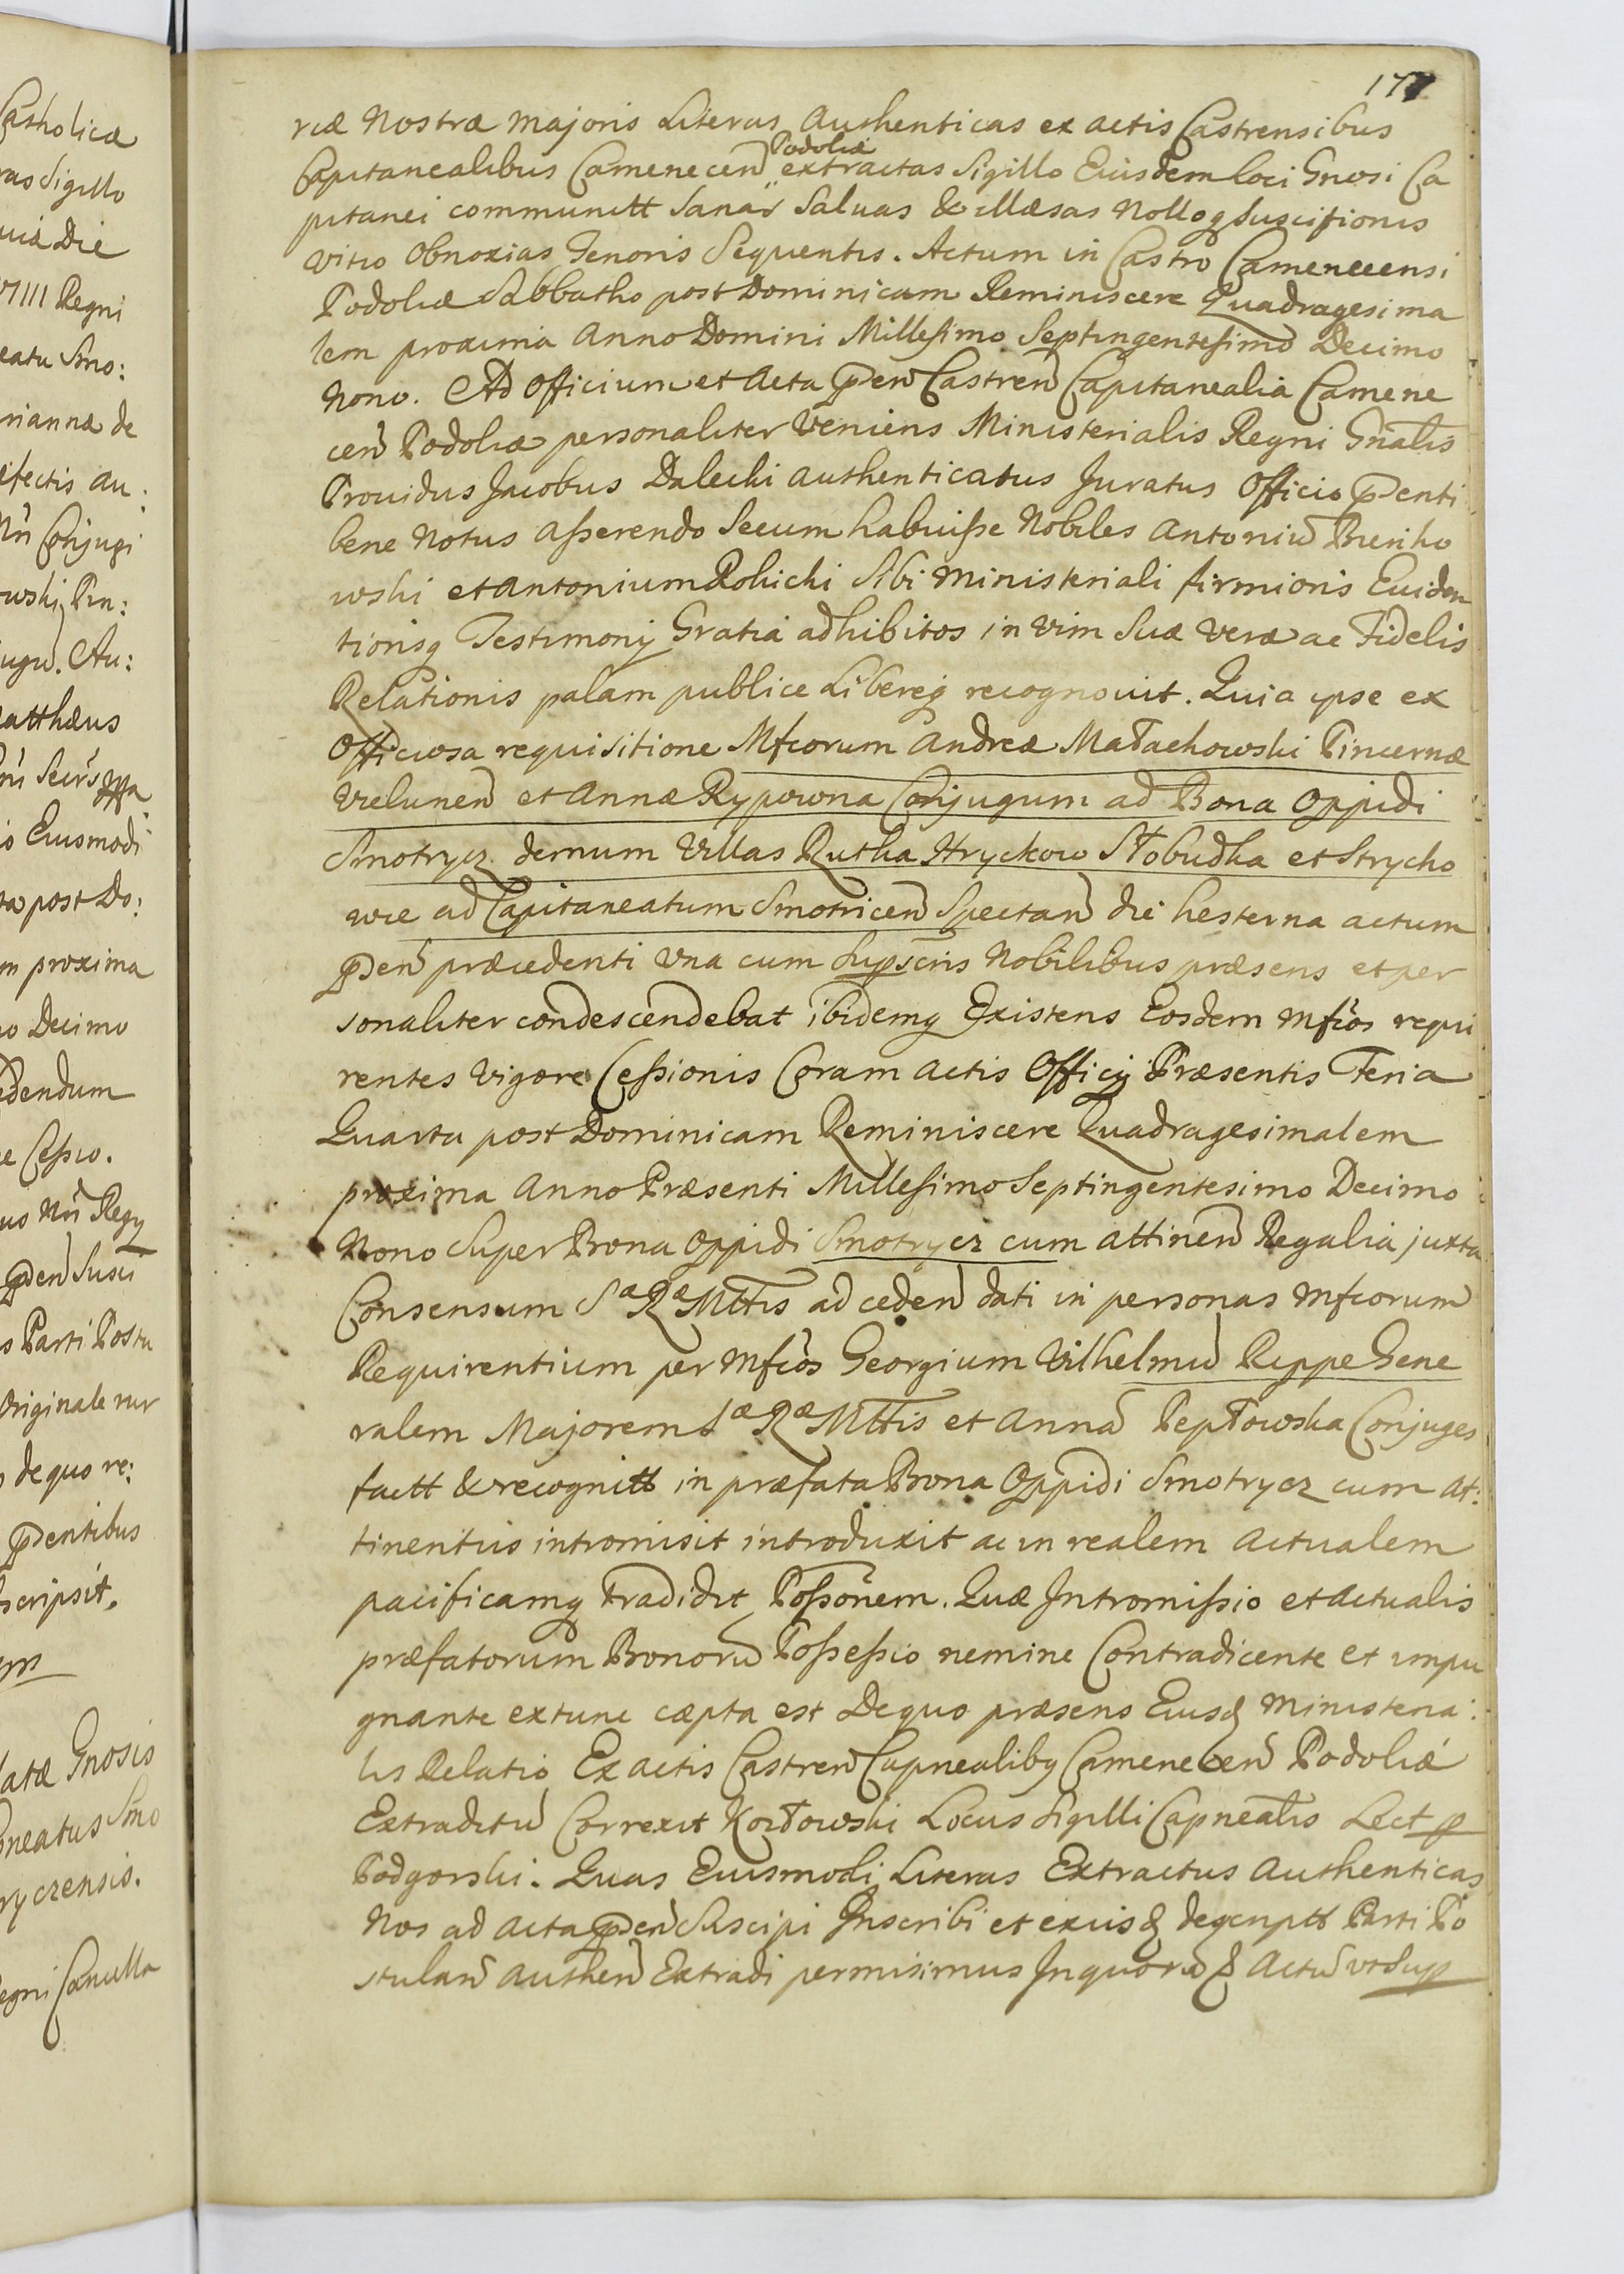 Catholicæ
ras Sigillo
Die
VIIII Regni
eatu Smo:
riannæ de
efectis au:
Nri Conjugi
wski, Pin:
ugu. Au:
atthæus
Eiusmodi
post Do:
m proxima
o Decimo
edendum
e Cessio.
us Nri Regij
pden Susci
s Parti Postu
Originale rur
de quo re:
pdentibus
scripsit.
latæ Gnosis
neatus Smo
ryczensis.
egni Cancella
177
riæ Nostræ Majoris Literas Authenticas ex actis Castrensibus
Podoliæ
Capitanealibus Camenecen extractas Sigillo Eiusdem loci Gnosi Ca
pitanei communitt Sanas Salvas & illæsas Nulloq Suscitionis
vitio Obnoxias Tenoris Sequentis. Actum in Castro Camenecensi
Podoliæ Sabbatho post Dominicam Reminiscere Quadragesima
lem proxima Anno Domini Millesimo Septingentesimo Decimo
Nono. Ad Officium et Acta pden Castren Capitanealia Camene
cen Podoliæ personaliter Veniens Ministerialis Regni Gnalis
Prouidus Jacobus Dalecki authenticatus Juratus Officio pdenti
bene Notus asserendo Secum habuisse Nobiles Antoniu Bierzko
wski et Antonium Rokicki Sibi Ministeriali firmioris Euiden
tiorisq Testimonij Gratia adhibitos in Vim Suæ Veræ ac Fidelis
Relationis palam publice Libereq recognouit. Quia ipse ex
Officiosa requisitione Mfcorum Andreæ Małachowski Pincernæ
Vielunen et Annæ Rypowna Conjugum ad Bona Oppidi
Smotrycz demum Villas Rutka Hryckow Słobudka et Strycho
wce ad Capitaneatum Smotricen Spectan die hesterna actum
pden præcedenti Vna cum Supscris Nobilibus præsens et per
sonaliter condescendebat ibidemq Existens Eosdem Mfcos requi
rentes Vigore Cessionis Coram Actis Officij Præsentis Feria
Quarta post Dominicam Reminiscere Quadragesimalem
proxima Anno Præsenti Millesimo Septingentesimo Decimo
Nono Super Bona Oppidi Smotrycz cum attinen Regalia juxta
Consensum Sæ Ræ Mttis ad ceden dati in personas Mfcorum
Requirentium per Mfcos Georgium Vilhelmu Rippe Gene
ralem Majorem Sæ Ræ Mttis et Anna Pepłowska Conjuges
factt & recognitt in præfata Bona Oppidi Smotrycz cum at:
tinentiis intromisit introduxit ac in realem actualem
pacificamq tradidit Possonem. Quæ Intromissio et actualis
præfatorum Bonoru Possessio nemine Contradicente et impu
gnante extunc cæpta est De quo præsens Eiusd Ministeria:
lis Relatio Ex actis Castren Capnealibq Camenecen Podoliæ
Extraditu Correxit Kozłowski Locus Sigilli Capnealis Lect p
Podgorski. Quas Eiusmodi Literas Extractus Authenticas
Nos ad acta pden Suscipi Inscribi et ex iisd descriptt Parti Po
stulan Authen Extradi permisimus In quoru & Actu vt Sup